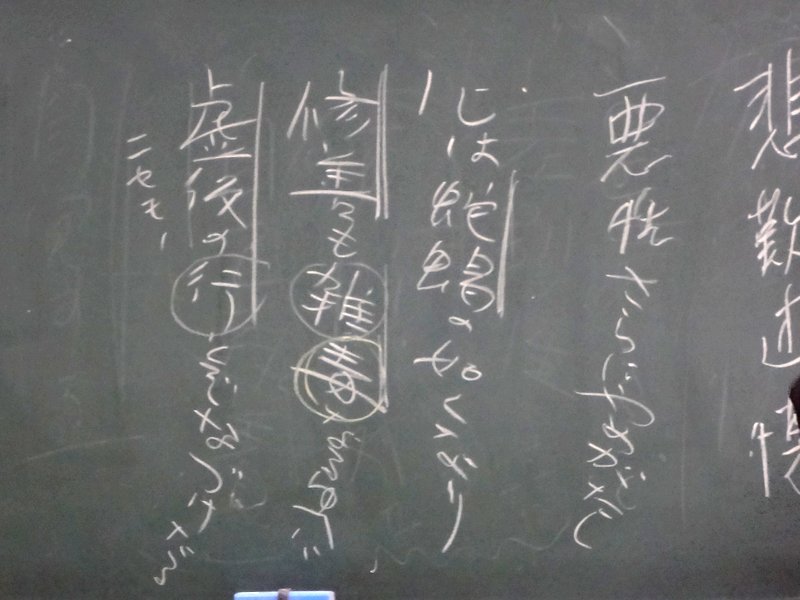 悲歎述懐
悪性さらにやめがたし
心は蛇蝎の如くなり
修善も雑毒なるゆへに
虚仮の行とぞなづけたる
ニセモノ